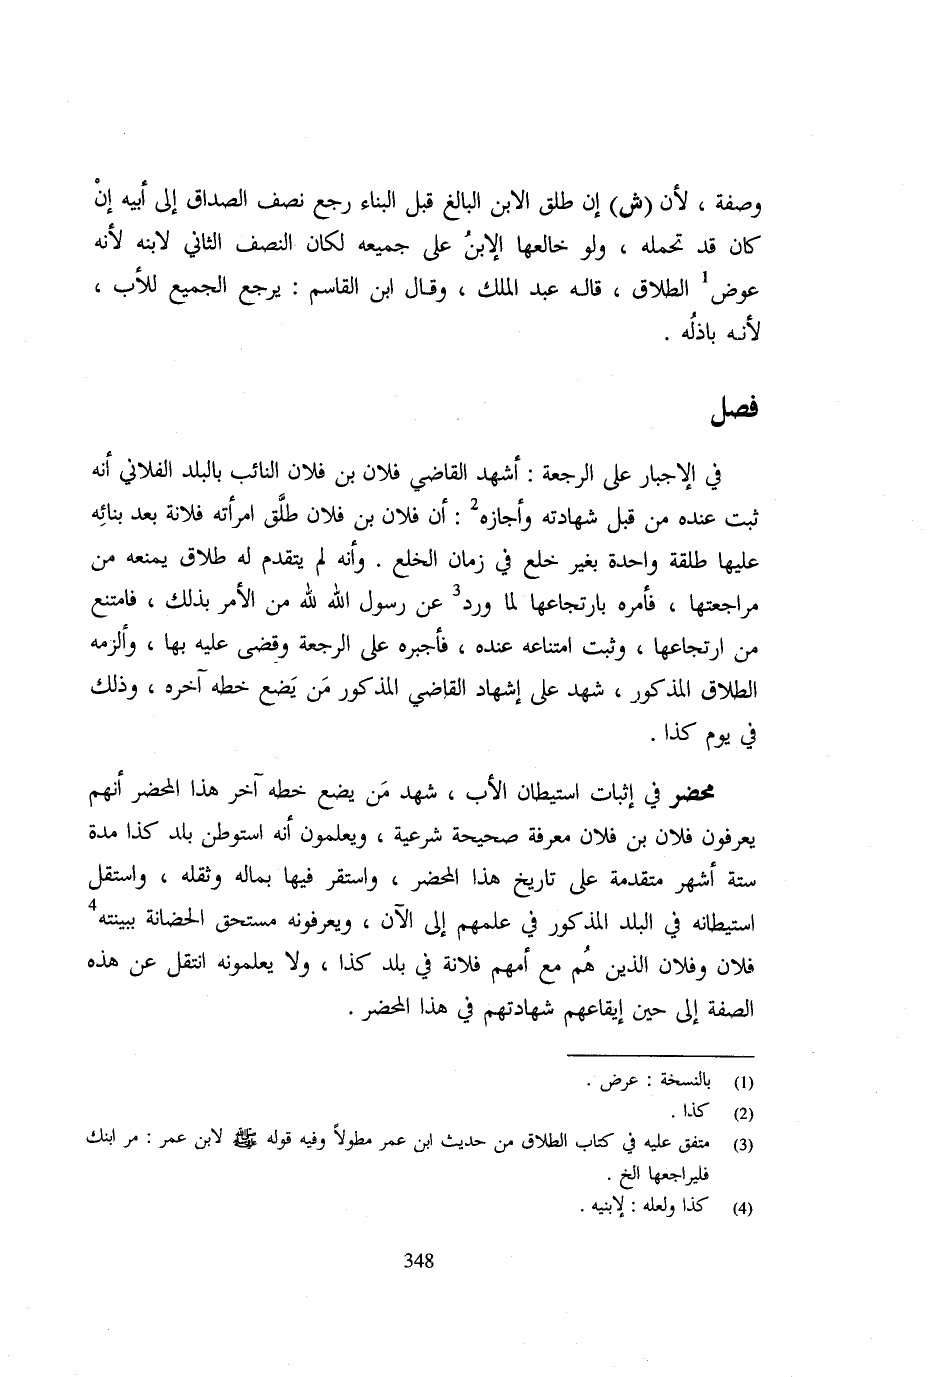 وصفة ، لأن (ش) إن طلق الابن البالغ قبل البناء رجع نصف الصداق إلى أبيه إنْ
كان قد تحمله ، ولو خالعها الإبنُ على جميعه لكان النصف الثاني لابنه لأنه
عوض1 الطلاق ، قاله عبد الملك ، وقال ابن القاسم : يرجع الجميع للأب ،
لأنه باذلُه .
فصل
في الإجبار على الرجعة : أشهد القاضي فلان بن فلان النائب بالبلد الفلاني أنه
ثبت عنده من قبل شهادته وأجازه2 : أن فلان بن فلان طلَّق امرأته فلانة بعد بنائه
عليها طلقة واحدة بغير خلع في زمان الخلع . وأنه لم يتقدم له طلاق يمنعه من
مراجعتها ، فأمره بارتجاعها لما ورد3 عن رسول الله لله من الأمر بذلك ، فامتنع
من ارتجاعها ، وثبت امتناعه عنده ، فأجبره على الرجعة وقضى عليه بها ، وألزمه
الطلاق المذكور ، شهد على إشهاد القاضي المذكور مَن يَضع خطه آخره ، وذلك
في يوم كذا .
محضر في إثبات استيطان الأب ، شهد مَن يضع خطه آخر هذا المحضر أنهم
يعرفون فلان بن فلان معرفة صحيحة شرعية ، ويعلمون أنه استوطن بلد كذا مدة
ستة أشهر متقدمة على تاريخ هذا المحضر ، واستقر فيها بماله وثقله ، واستقل
استيطانه في البلد المذكور في علمهم إلى الآن ، ويعرفونه مستحق الحضانة ببينته4
فلان وفلان الذين هُم مع أمهم فلانة في بلد كذا ، ولا يعلمونه انتقل عن هذه
الصفة إلى حين إيقاعهم شهادتهم في هذا المحضر .
(1) بالنسخة : عرض .
(2) كذا .
(3) متفق عليه في كتاب الطلاق من حديث ابن عمر مطولاً وفيه قوله ﷺ لابن عمر : مر ابنك
فليراجعها الخ .
(4) كذا ولعله : لإبنيه .
348